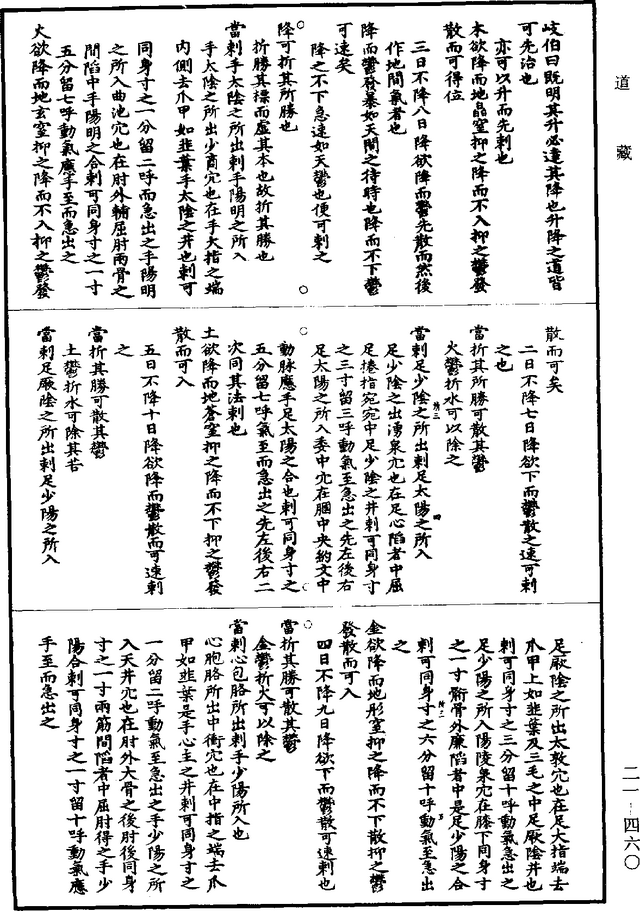 道藏
岐伯曰既明其升必達其降也升降之道皆
可先治也
亦可以升而先刺也
木欲降而地晶窒抑之降而不入抑之鬱發
散而可得位
三日不降八日降欲降而鬱先散而然後
作地間氣者也
降而鬱發暴如天間之待時也降而不下鬱
可速矣
降之不下急速如天鬱也便可刺之
降可折其所勝也
折勝其摽而虛其本也故折其勝也
當刺手太陰之所出刺手陽明之所入
手太陰之所出少商穴也在手大指之端
內側去爪甲如韭葉手太陰之井也刺可
同身寸之一分留二呼而急出之手陽明
之所入曲池穴也在肘外輔屈肘兩骨之
間陷中手陽明之合刺可同身寸之一寸
五分留七呼動氣應手至而急出之
火欲降而地玄窒抑之降而不入抑之鬱發
散而可矣
二日不降七日降欲下而鬱散之速可刺
之也
當折其所勝可散其鬱
火鬱折水可以除之
當刺足少陰之所出刺足太陽之所入
足少陰之出湧泉穴也在足心陷者中屈
足捲指宛宛中足少陰之井刺可同身寸
之三寸留三呼動氣至急出之先左後右
足太陽之所入委中穴在膕中央約文中
動脉應手足太陽之合也刺可同身寸之
五分留七呼氣至而急出之先左後右二
次同其法刺也
土欲降而地蒼窒抑之降而不下抑之鬱發
散而可入
五日不降十日降欲降而鬱散而可速刺
之
當折其勝可散其鬱
土鬱折水可除其苦
當刺足厥陰之所出刺足少陽之所入
足厥陰之所出太敦穴也在足大指端去
爪甲上如韭葉及三毛之中足厥陰井也
刺可同身寸之三分留十呼動氣急出之
足少陽之所入陽陵泉穴在膝下同身寸
之一寸䯒骨外廉陷者中是足少陽之合
刺可同身寸之六分留十呼動氣至急出
之
金欲降而地彤窒抑之降而不下散抑之鬱
發散而可入
四日不降九日降欲下而鬱散可速刺也
當折其勝可散其鬱
金鬱折火可以除之
當刺心包胳所出刺手少陽所入也
心胞胳所出中衝穴也在中指之端去爪
甲如韭葉是手心主之井刺可同身寸之
一分留二呼動氣至急出之手少陽之所
入天井穴也在肘外大骨之後肘後同身
寸之一寸兩筋間陷者中屈肘得之手少
陽合刺可同身寸之一寸留十呼動氣應
手至而急出之
二一·四六〇